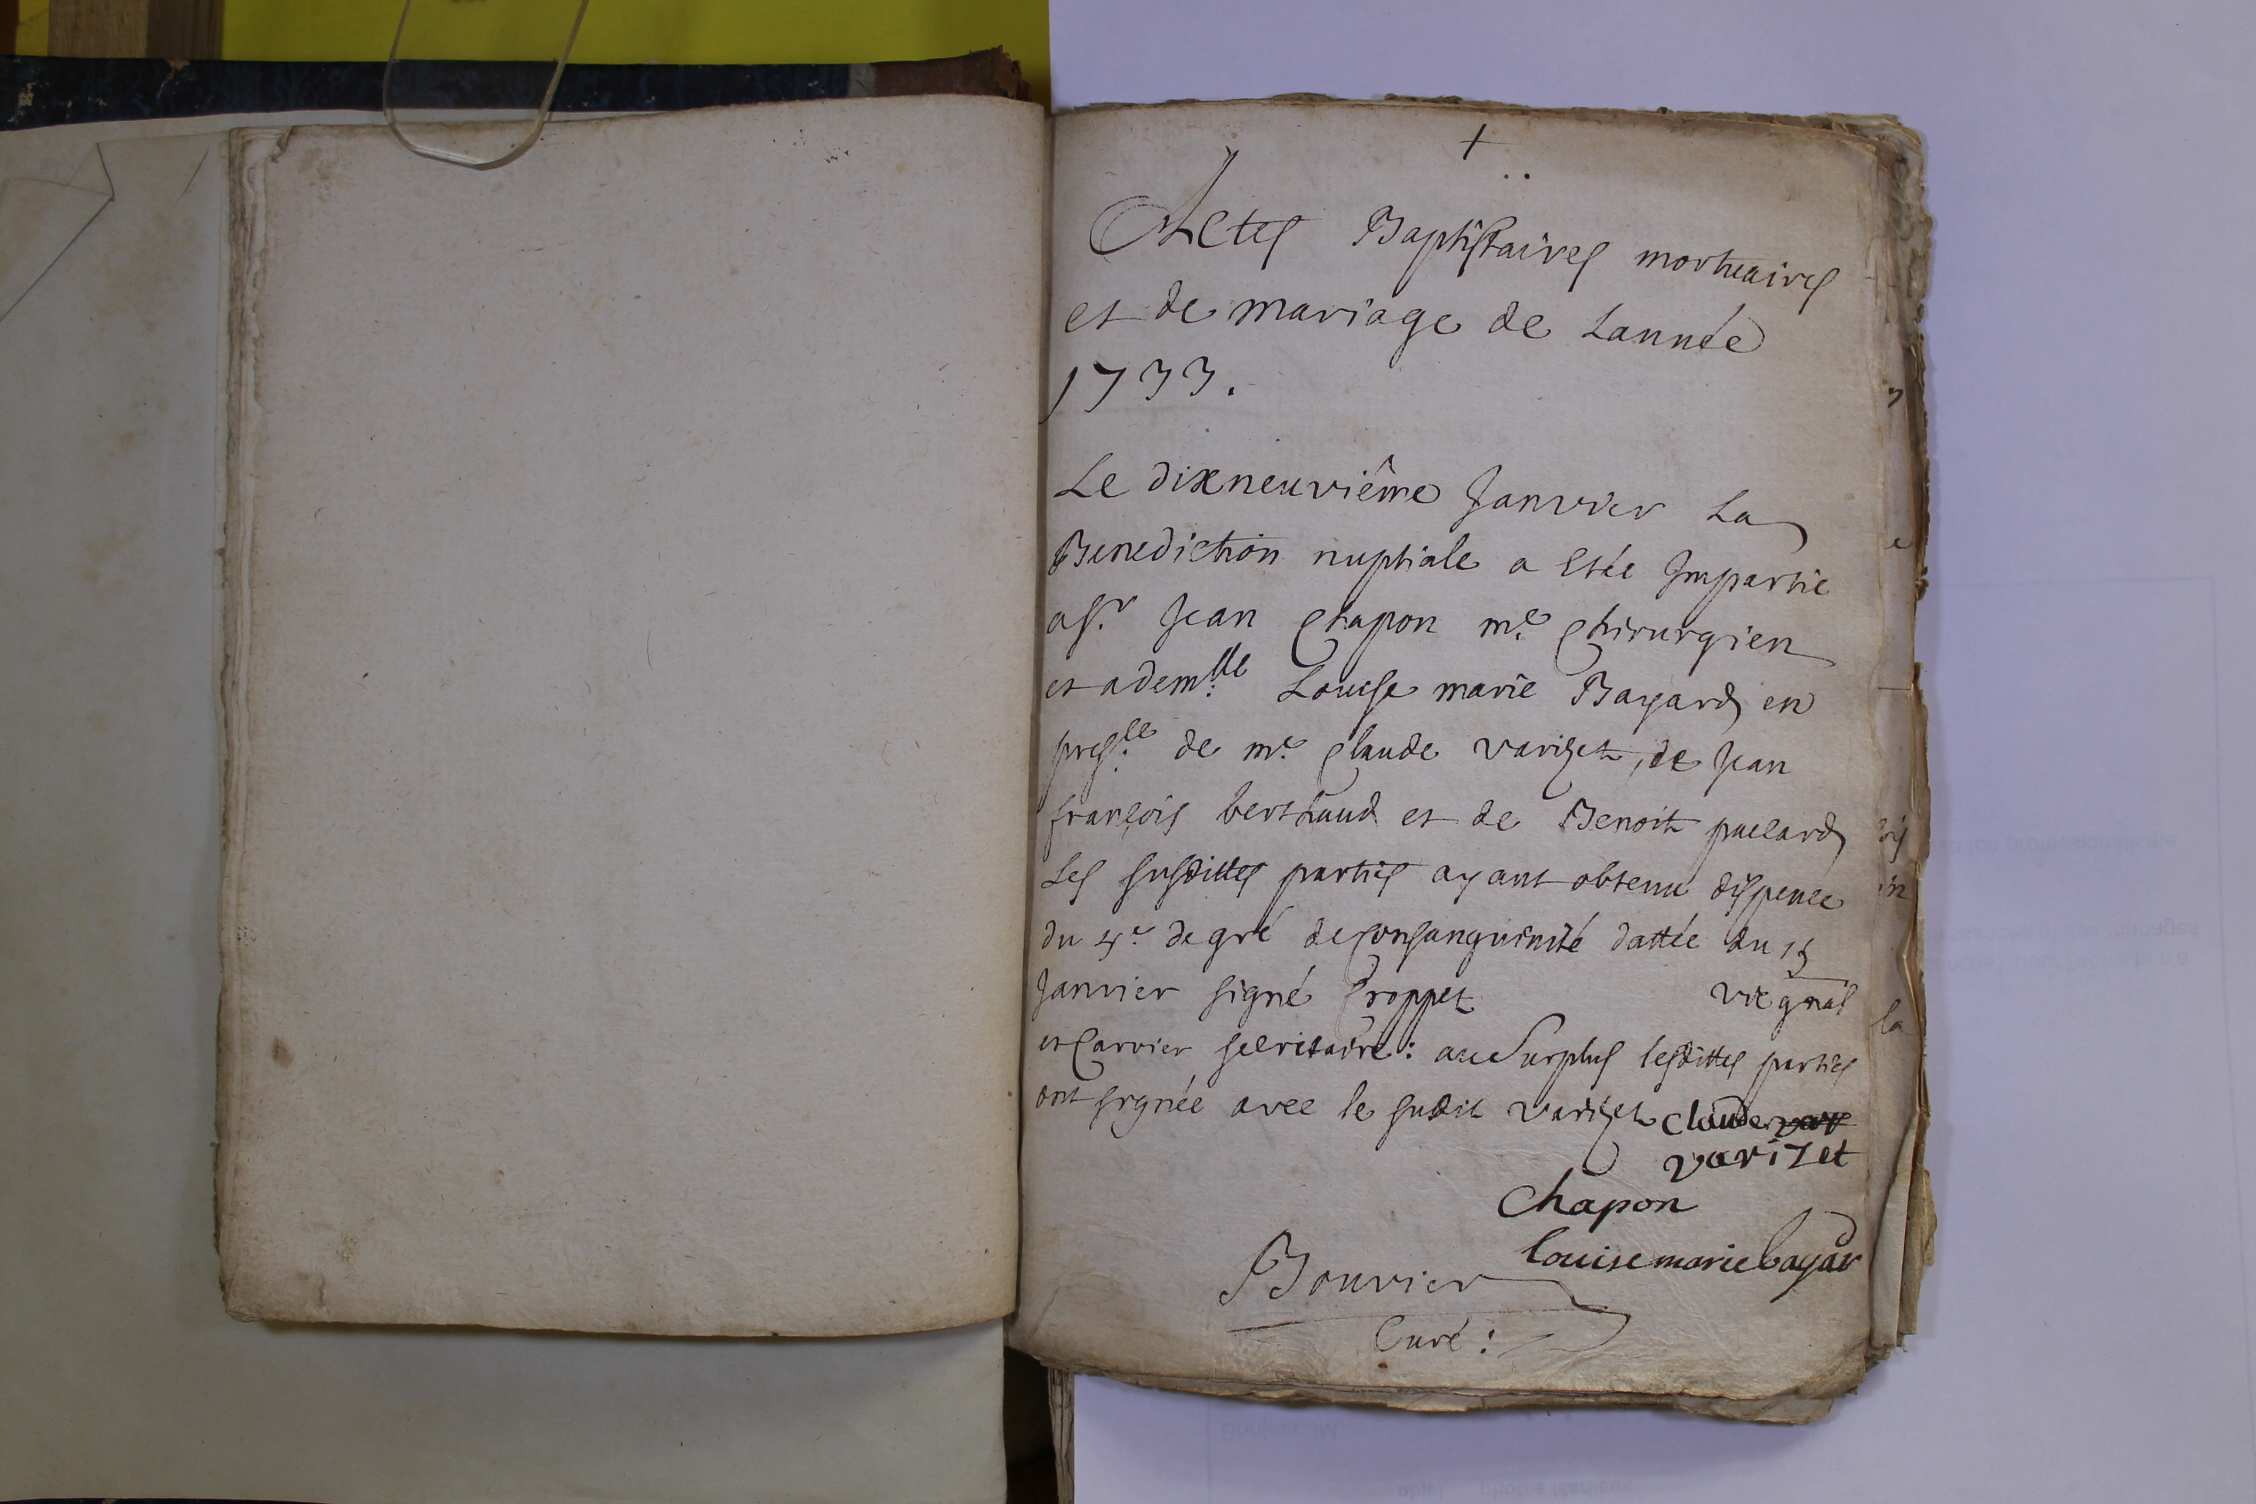 +
Actes Baptistaires mortuaires
et de mariage de Lannée
1733.
Le dixneuviême Janvier La
Benediction nuptiale a Etée Impartie
a sr. Jean Chapon me. Chirurgien
et a demlle. Louise marie Bayard en
presce. de me. Claude varizet, de Jean
françois berthaud et de Benoit paccard
Les susdittes parties ayant obtenu dispence
du 4e. degré de Consanguinité dattée du 15
Janvier signé Croppet vic gnal
et Carrier secretaire: au Surplus lesdittes parties
ont signée avec le sudit varizet claude var
varizet
Chapon
louise marie bayard
Bouvier
Curé: